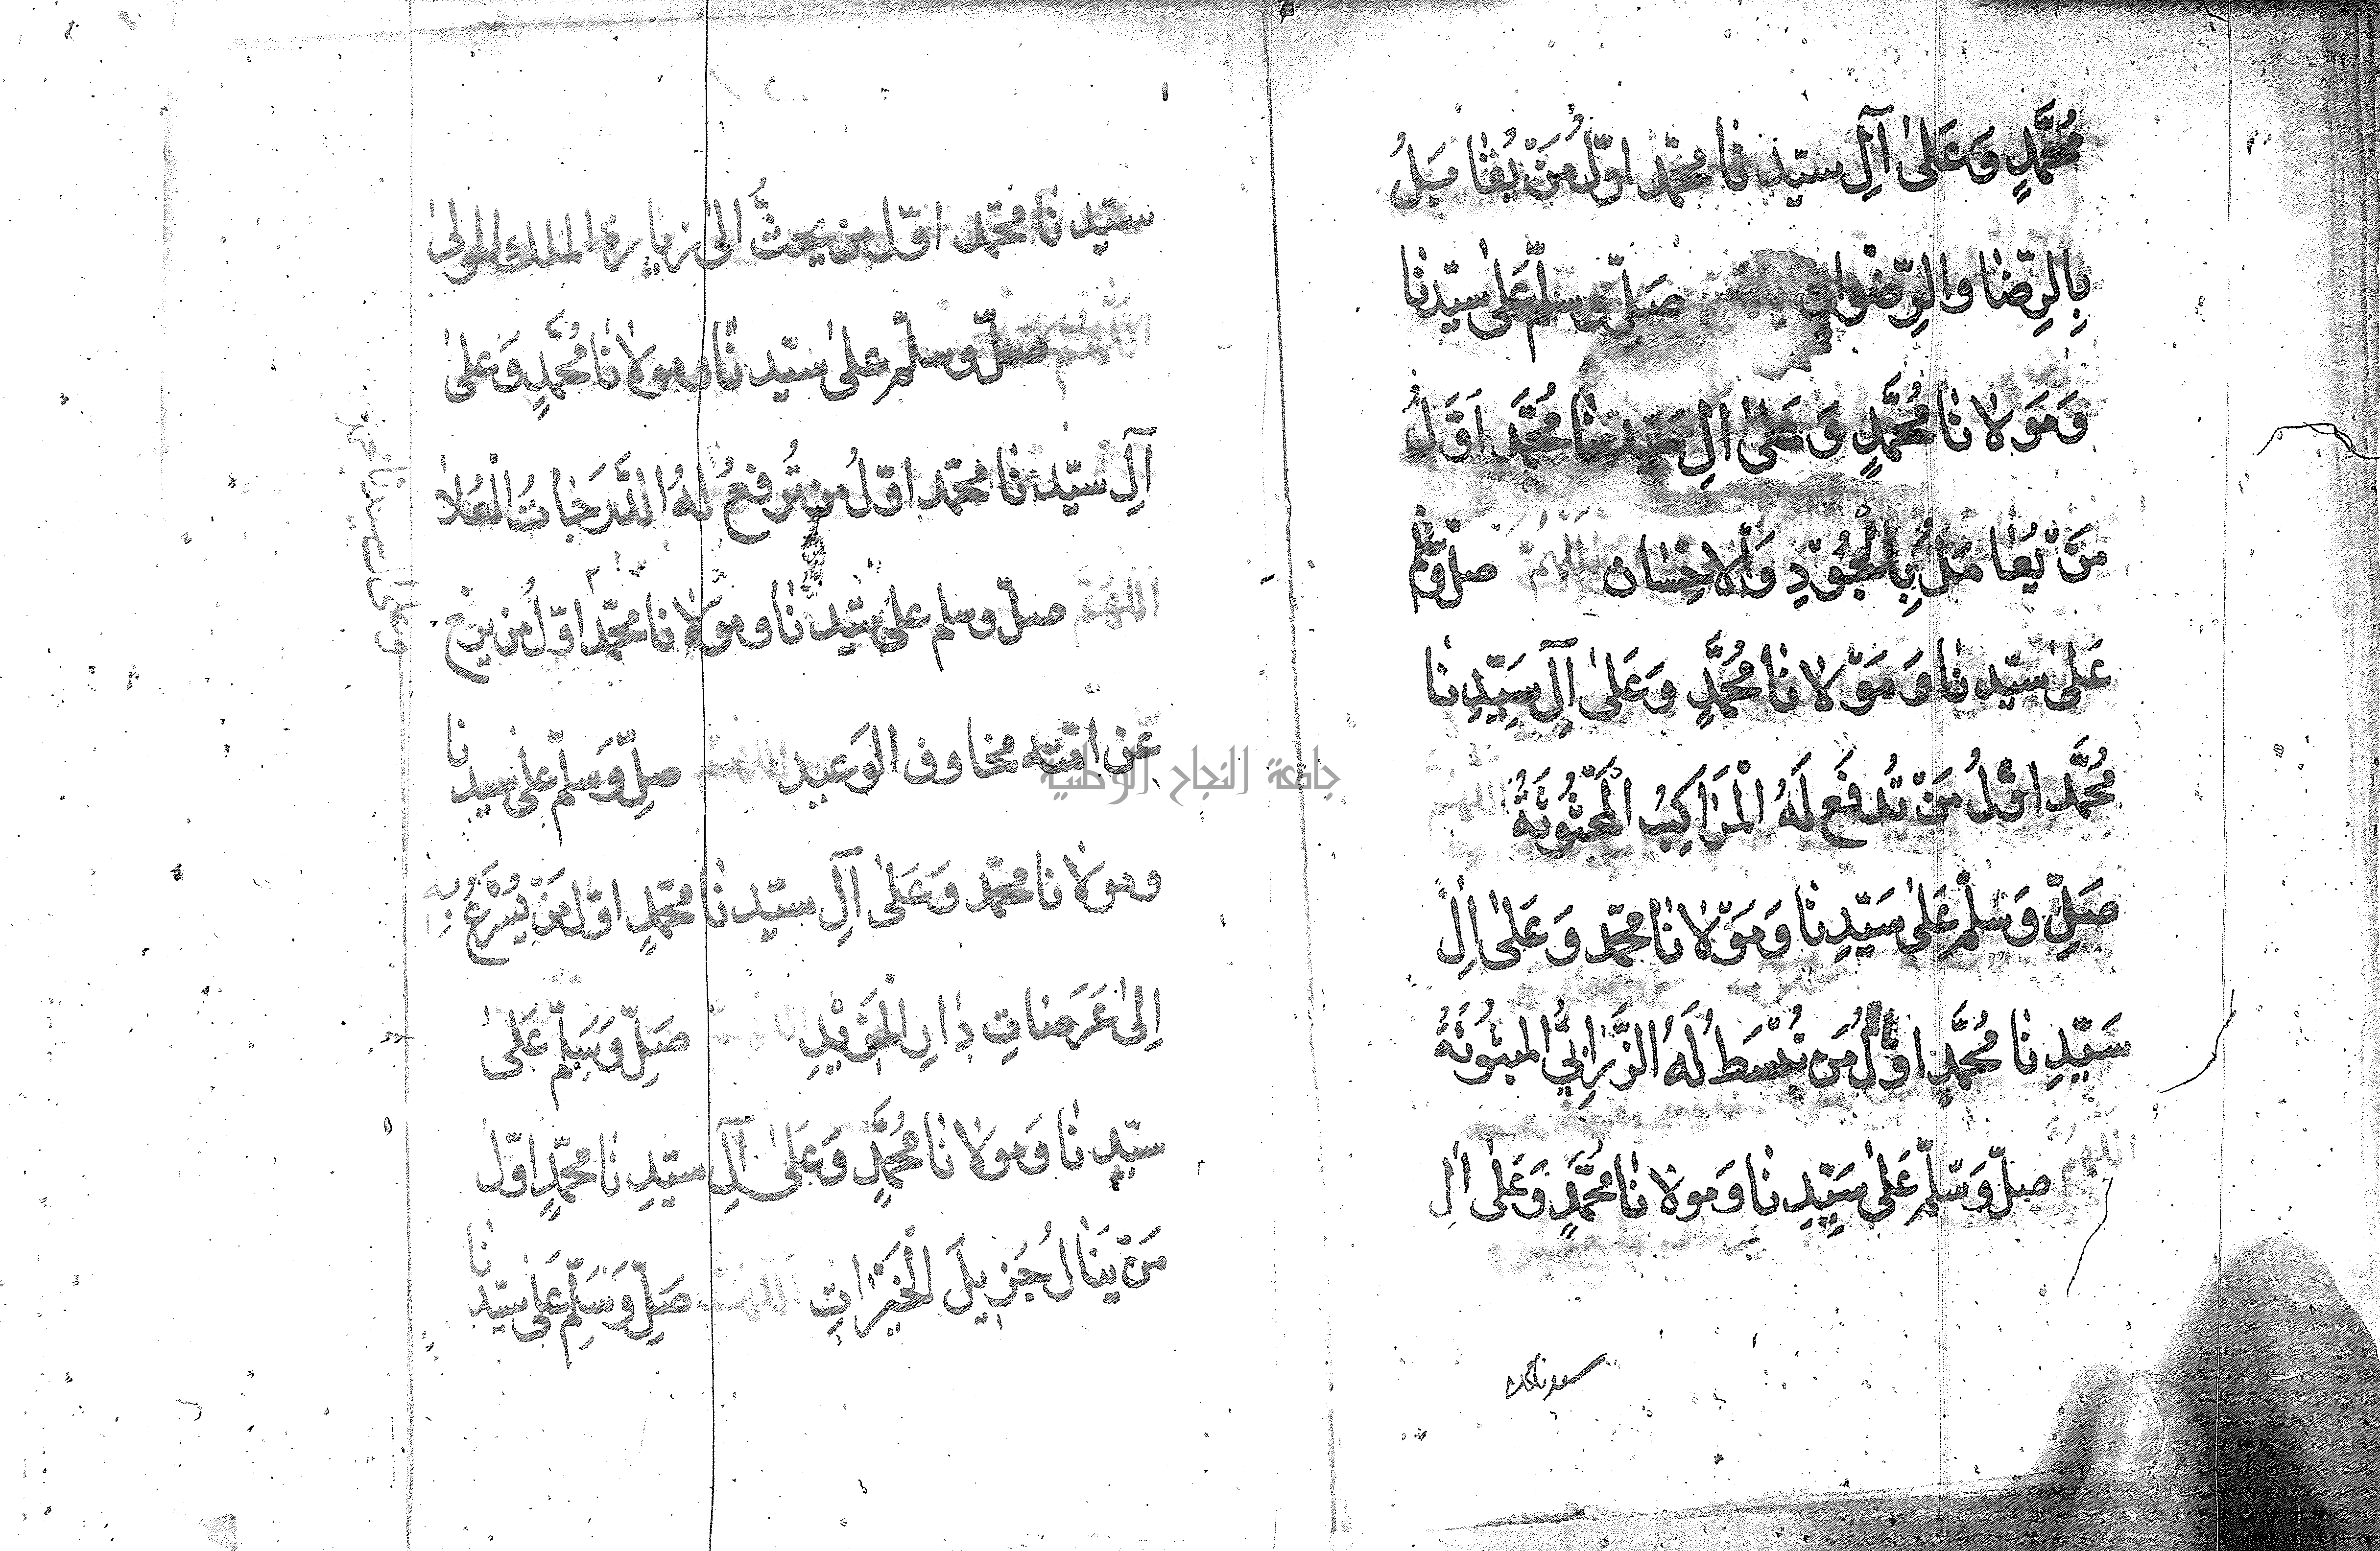 مُحَمَّدٍ وَعَلىٰ آلِ سيّدنا محمّد اوّلُ مَنْ يُقٰابَلُ
بِالرِّضٰا والرِّضْوانِ صَلِّ وسلّم عَلىٰ سيّدنٰا
وَمَوَلاٰنٰا مُحَمَّدٍ وَعَلىٰ اٰلِ سَيّدِنٰا مُحَمَّدٍ اَوَّلُ
مَنْ يُعٰامَلُ بِالْجُوْدِ وَالْاِحْسٰان اللهم صلّ وسلّم
عَلىٰ سيّدنٰا وَمَوْلاٰنٰا مُحَمَّدٍ وَعَلىٰ آلِ سَيِّدِنٰا
مُحَمَّد اوَّلُ مَنْ تُدفَع لَهُ الْمَرٰاكِبُ الْمَحْثُوثَةُ
صَلِّ وَسَلّم عَلىٰ سَيّدِنٰا وَمَوْلاٰنٰا محمّد وَعَلىٰ اٰلِ
سَيّدِنٰا مُحَمَّدٍ اوَّلُ مَن تُبْسَطُ لَهُ الزَّرٰابِيُّ المبثُوثَةُ
اللهُمَّ صلّ وَسَلّم عَلىٰ سَيِّدِنٰا وَمَولاٰنٰا مُحَمَّدٍ وَعَلىٰ اٰلِ
سيدنا محمد
سيّدنٰا محمّد اوّل من يحثُّ الىٰ زيارة الملك المولىٰ
اللَّهُمَّ صلّ وسلّم علىٰ سيّدنٰا ومولاٰنٰا مُحَمَّدٍ وَعَلىٰ
آلِ سيّدنٰا محمّد اوّلُ من تُرفعُ لهُ الدَّرَجٰاتُ الْعُلاٰ
اللهُمَّ صلّ وسلم علىٰ سيّدنٰا ومَوْلاٰنٰا محمّد اوّلُ من يرفع
وعلى آل سيدنا محمد
عَن امّته مخاوف الوَعيد اللهم صلِّ وَسَلّم عَلىٰ سيدنٰا
ومولاٰنٰا محمّد وَعَلىٰ آلِ سيّدنٰا محمّدٍ اوّل مَنْ يُسْرَعُ بِهِ
اِلىٰ عَرَصٰاتِ دٰارِ الْمَزِيْدِ اللهم صَلِّ وَسَلِّمْ عَلىٰ
سيّدِنٰا وَمولاٰنٰا مُحَمَّدٍ وَعَلىٰ آلِ سيّدِنٰا محمّدٍ اوّل
مَنْ يَنٰالُ جَزِيلَ الْخَيْرٰاتِ اللهم صَلِّ وَسَلِّم عَلىٰ سيّدنٰا
جامعة النجاح الوطنية